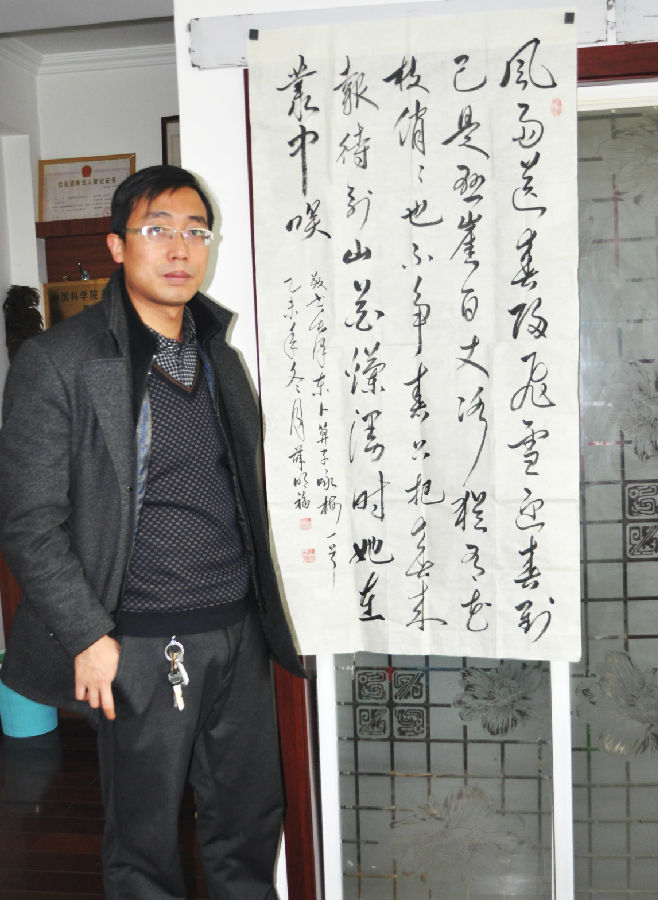 风雨送春归飞雪迎春到
已是悬崖百丈冰犹有花
枝俏〻也不争春只把春来
報待到山花烂漫时她在
叢中咲
敬书毛泽东卜算子咏梅一首
乙未年冬月
社会团体法人登记证书
中国科学院